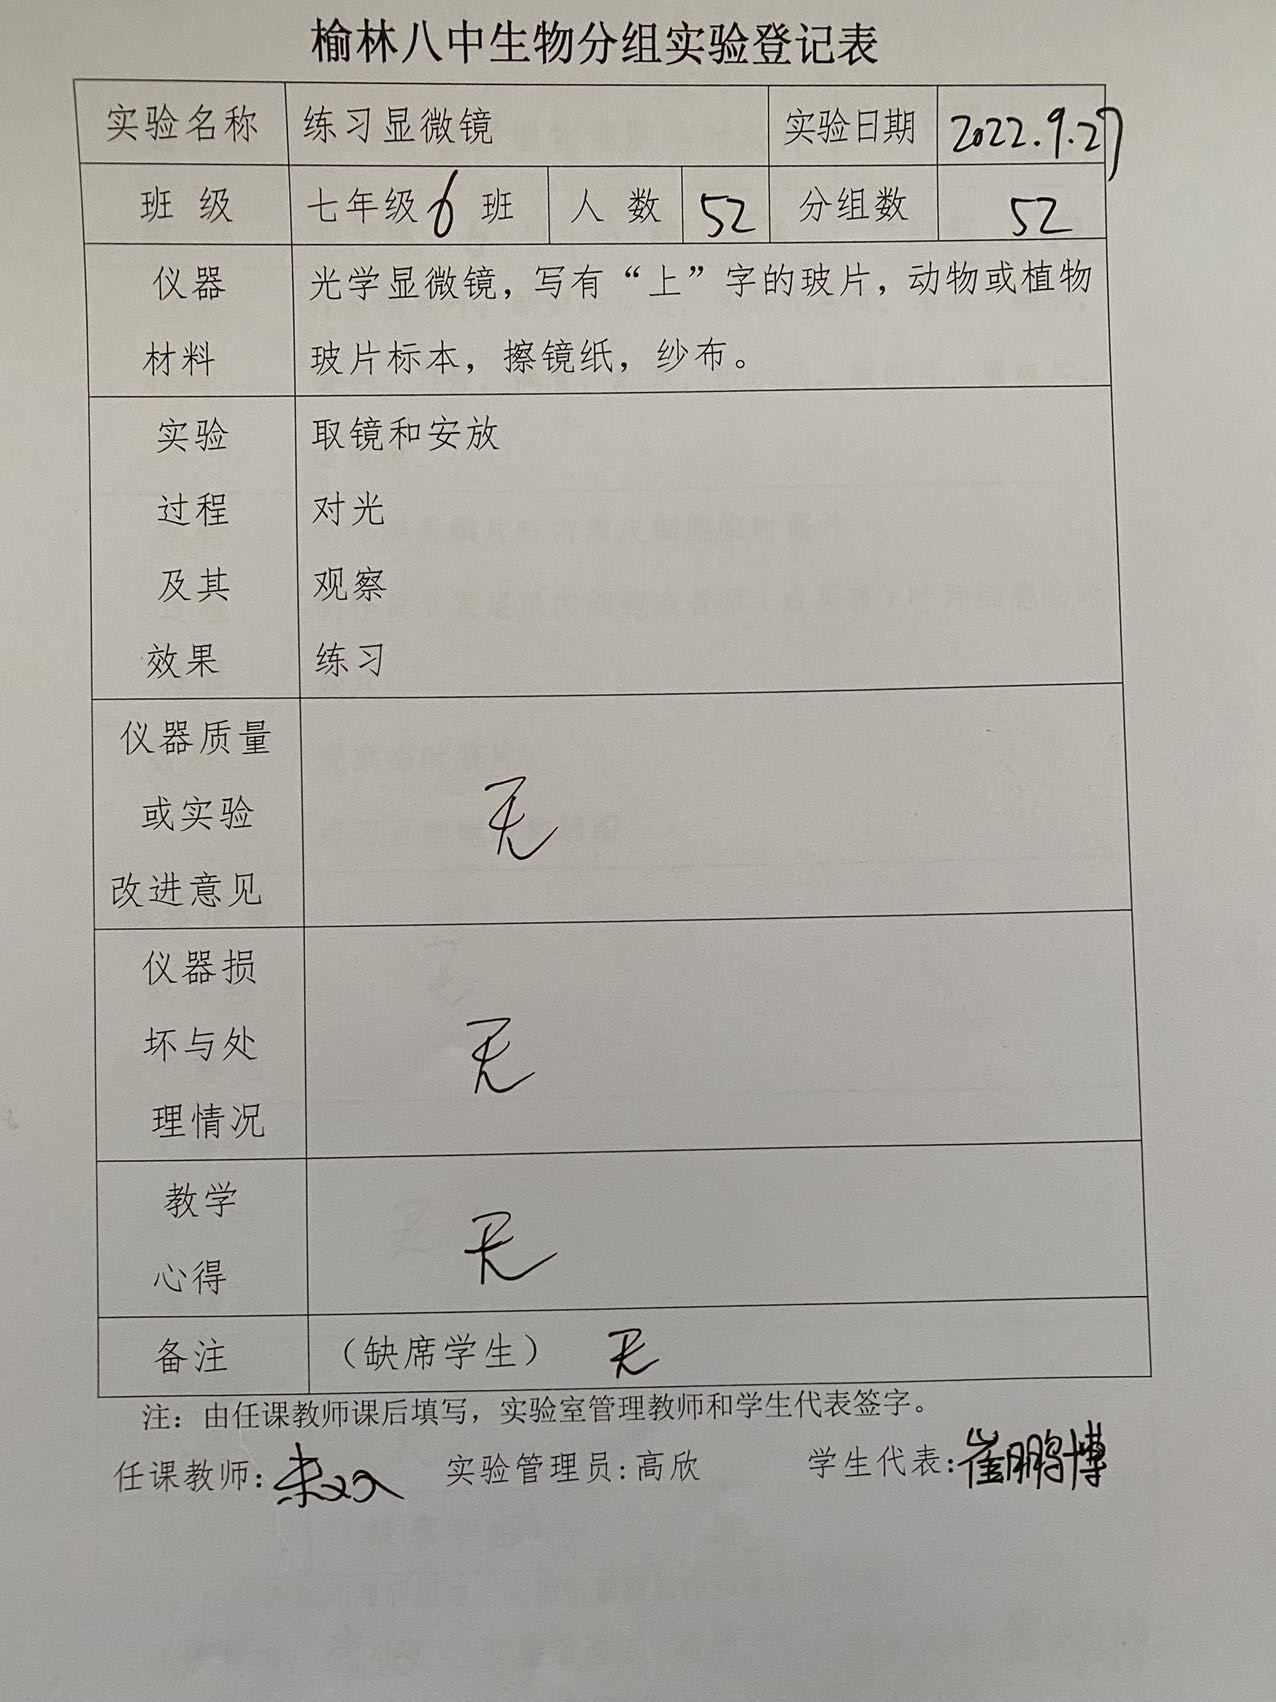 榆林八中生物分组实验登记表
实验名称 练习显微镜 实验日期 2022.9.27
班 级 七年级6班 人 数 52 分组数 52
仪器 光学显微镜，写有“上”字的玻片，动物或植物
材料 玻片标本，擦镜纸，纱布。
实验 取镜和安放
过程 对光
及其 观察
效果 练习
仪器质量
或实验 无
改进意见
仪器损
坏与处 无
理情况
教学
心得 无
备注 （缺席学生） 无
注：由任课教师课后填写，实验室管理教师和学生代表签字。
任课教师: 实验管理员:高欣 学生代表:崔鹏博